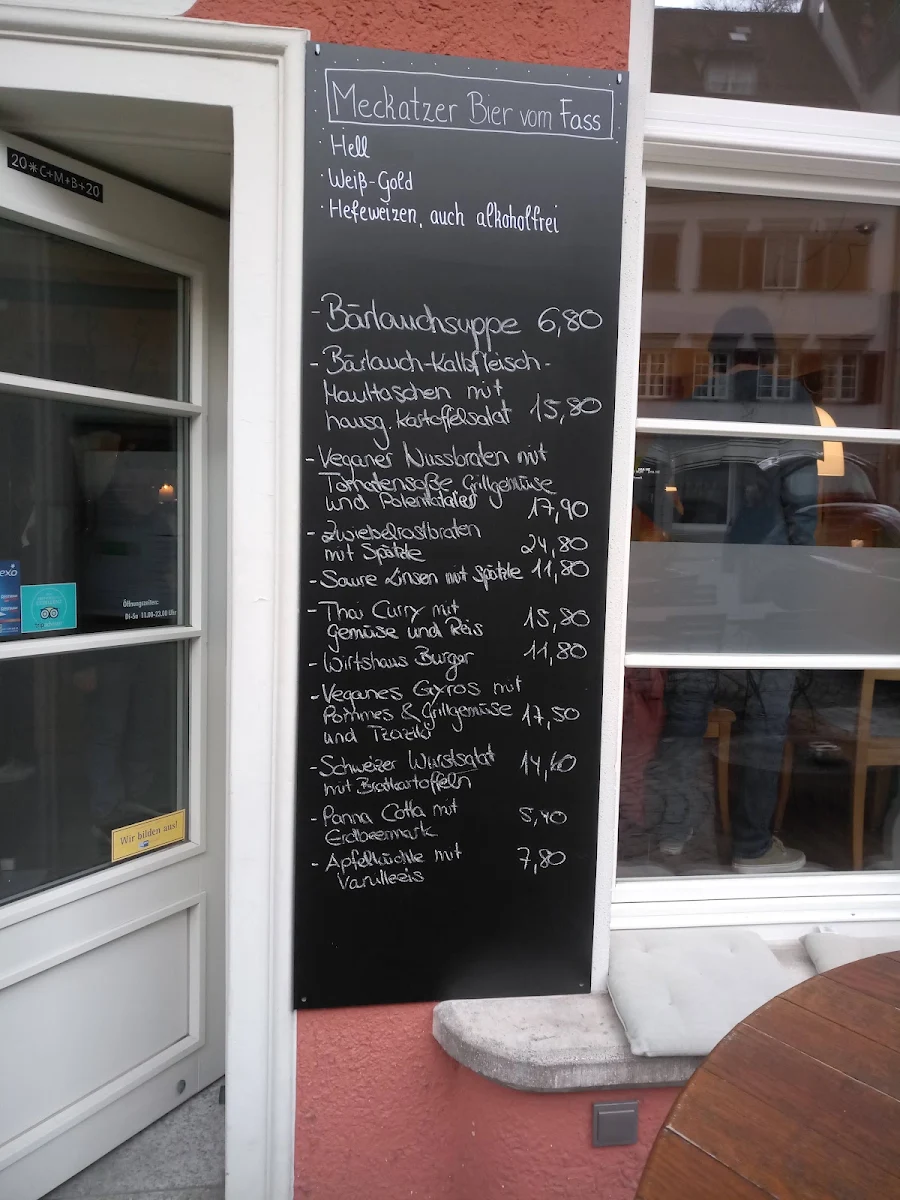 Meckatzer Bier vom Fass
· Hell
· Weiß-Gold
· Hefeweizen, auch alkoholfrei
- Bärlauchsuppe 6,80
- Bärlauch-Kalbfleisch-
Maultaschen mit
hausg. Kartoffelsalat 15,80
- Veganer Nussbraten mit
Tomatensoße Grillgemüse
und Polentataler 17,90
- Zwiebelrostbraten
mit Spätzle 24,80
- Saure Linsen mit Spätzle 11,80
- Thai Curry mit
Gemüse und Reis 15,80
- Wirtshaus Burger 11,80
- Veganes Gyros mit
Pommes & Grillgemüse 17,50
und Tzaziki
- Schweizer Wurstsalat 14,60
mit Bratkartoffeln
- Panna Cotta mit 5,40
Erdbeermark
- Apfelküchle mit 7,80
Vanilleeis
20*C+M+B+20
exo
Öffnungszeiten:
Wir bilden aus!